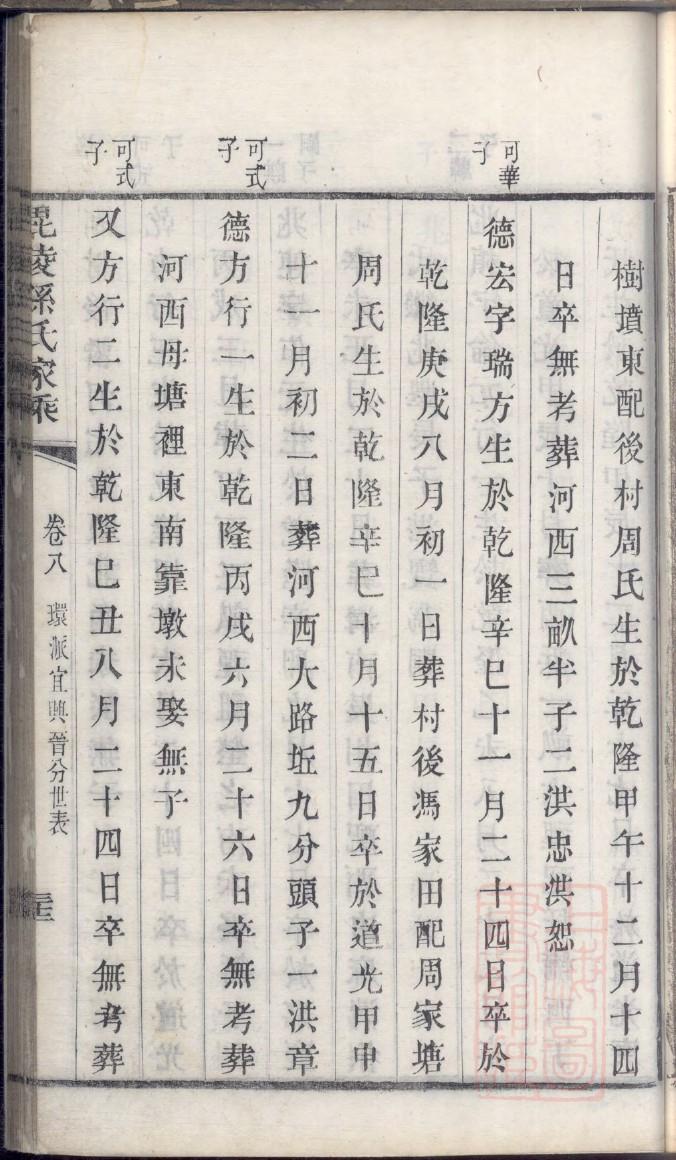 樹墳東配後村周氏生於乾隆甲午十二月十四
日卒無考葬河西三畝半子二洪忠洪恕
可華子
德宏字瑞方生於乾隆辛巳十一月二十四日卒於
乾隆庚戌八月初一日葬村後馮家田配周家塘
周氏生於乾隆辛巳十月十五日卒於道光甲申
十一月初二日葬河西大路坵九分頭子一洪章
可式子
德方行一生於乾隆丙戌六月二十六日卒無考葬
河西母塘裡東南靠墩未娶無子
可式子
又方行二生於乾隆巳丑八月二十四日卒無考葬
毘陵孫氏家乘
卷八 環派宜興晉分世表